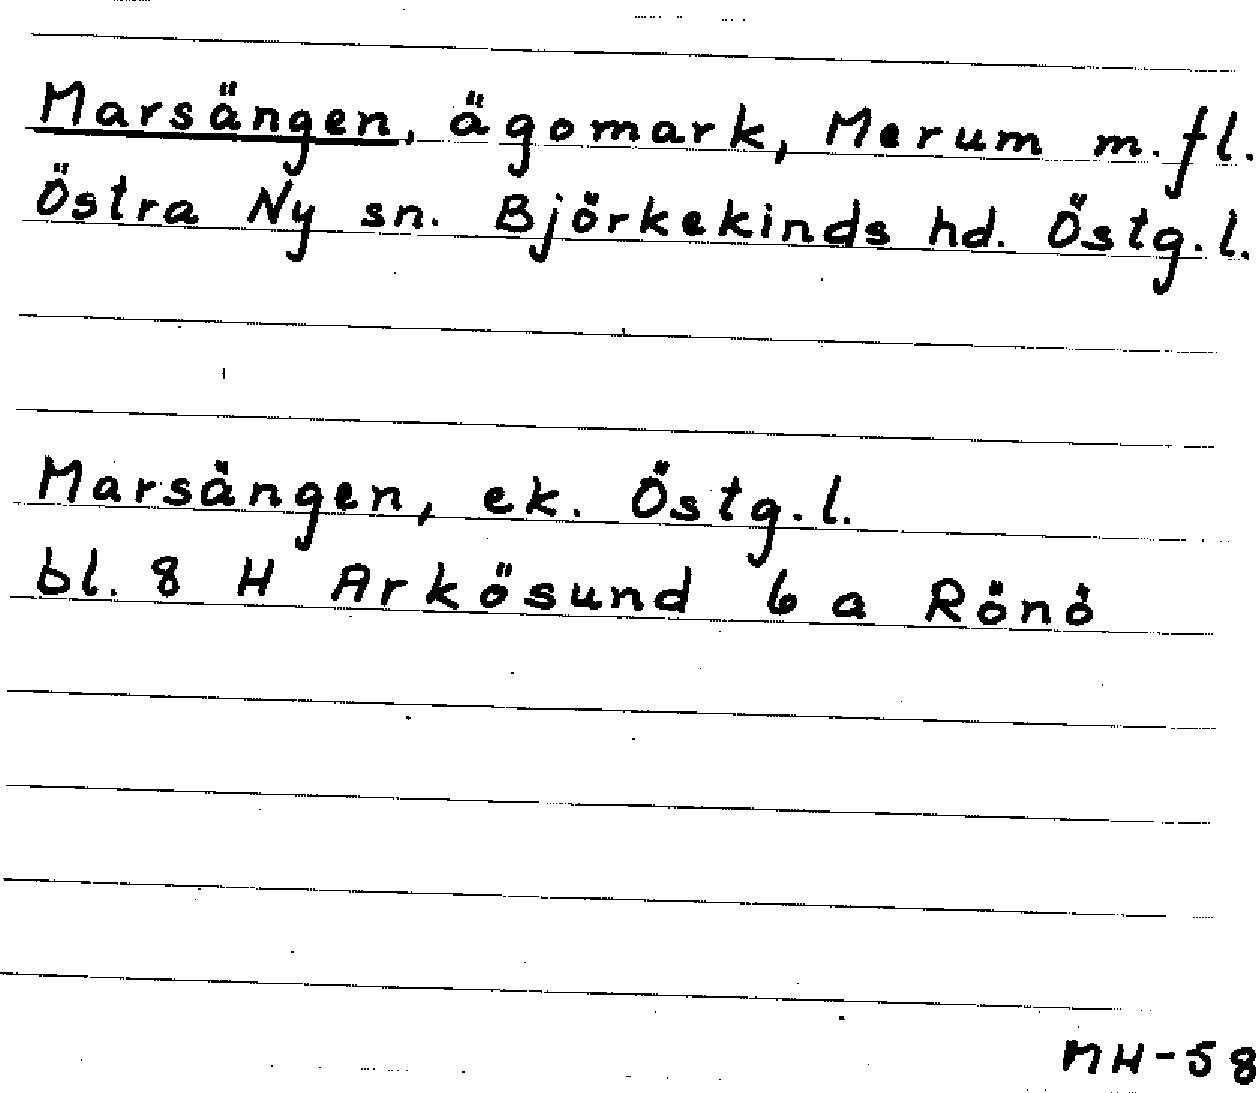 Marsängen, ägomark, Merum m.fl.
Östra Ny sn. Björkekinds hd. Östg.l.
Marsängen, ek. Östg.l.
bl. 8 H Arkösund 6 a Rönö
MH-58